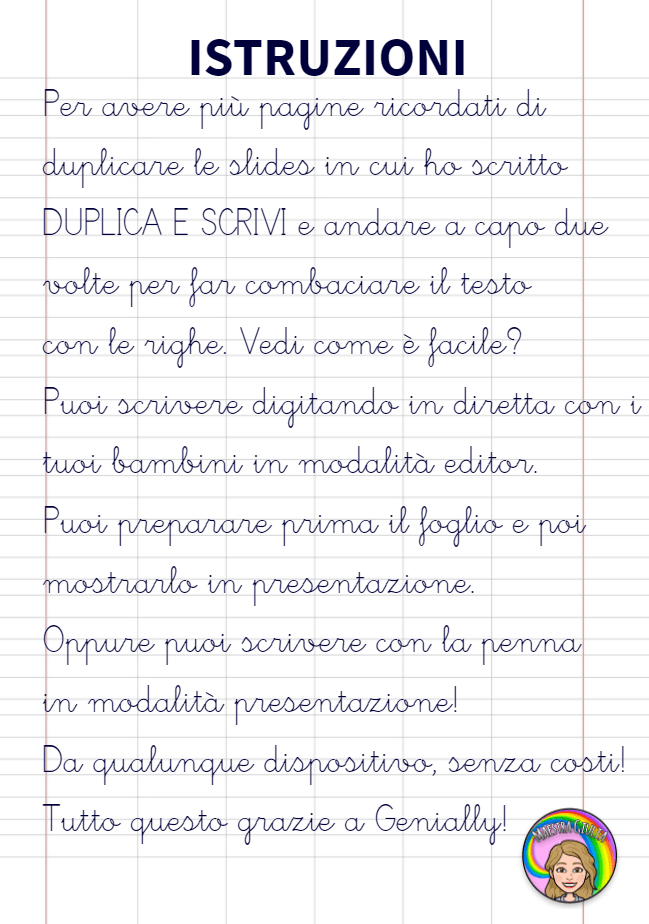 ISTRUZIONI
Per avere più pagine ricordati di
duplicare le slides in cui ho scritto
DUPLICA E SCRIVI e andare a capo due
volte per far combaciare il testo
con le righe. Vedi come è facile?
Puoi scrivere digitando in diretta con i
tuoi bambini in modalità editor.
Puoi preparare prima il foglio e poi
mostrarlo in presentazione.
Oppure puoi scrivere con la penna
in modalità presentazione!
Da qualunque dispositivo, senza costi!
Tutto questo grazie a Genially!
MAESTRA GIULIA